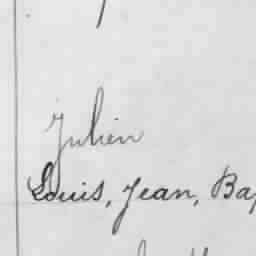 Julien
Louis, Jean, Bap